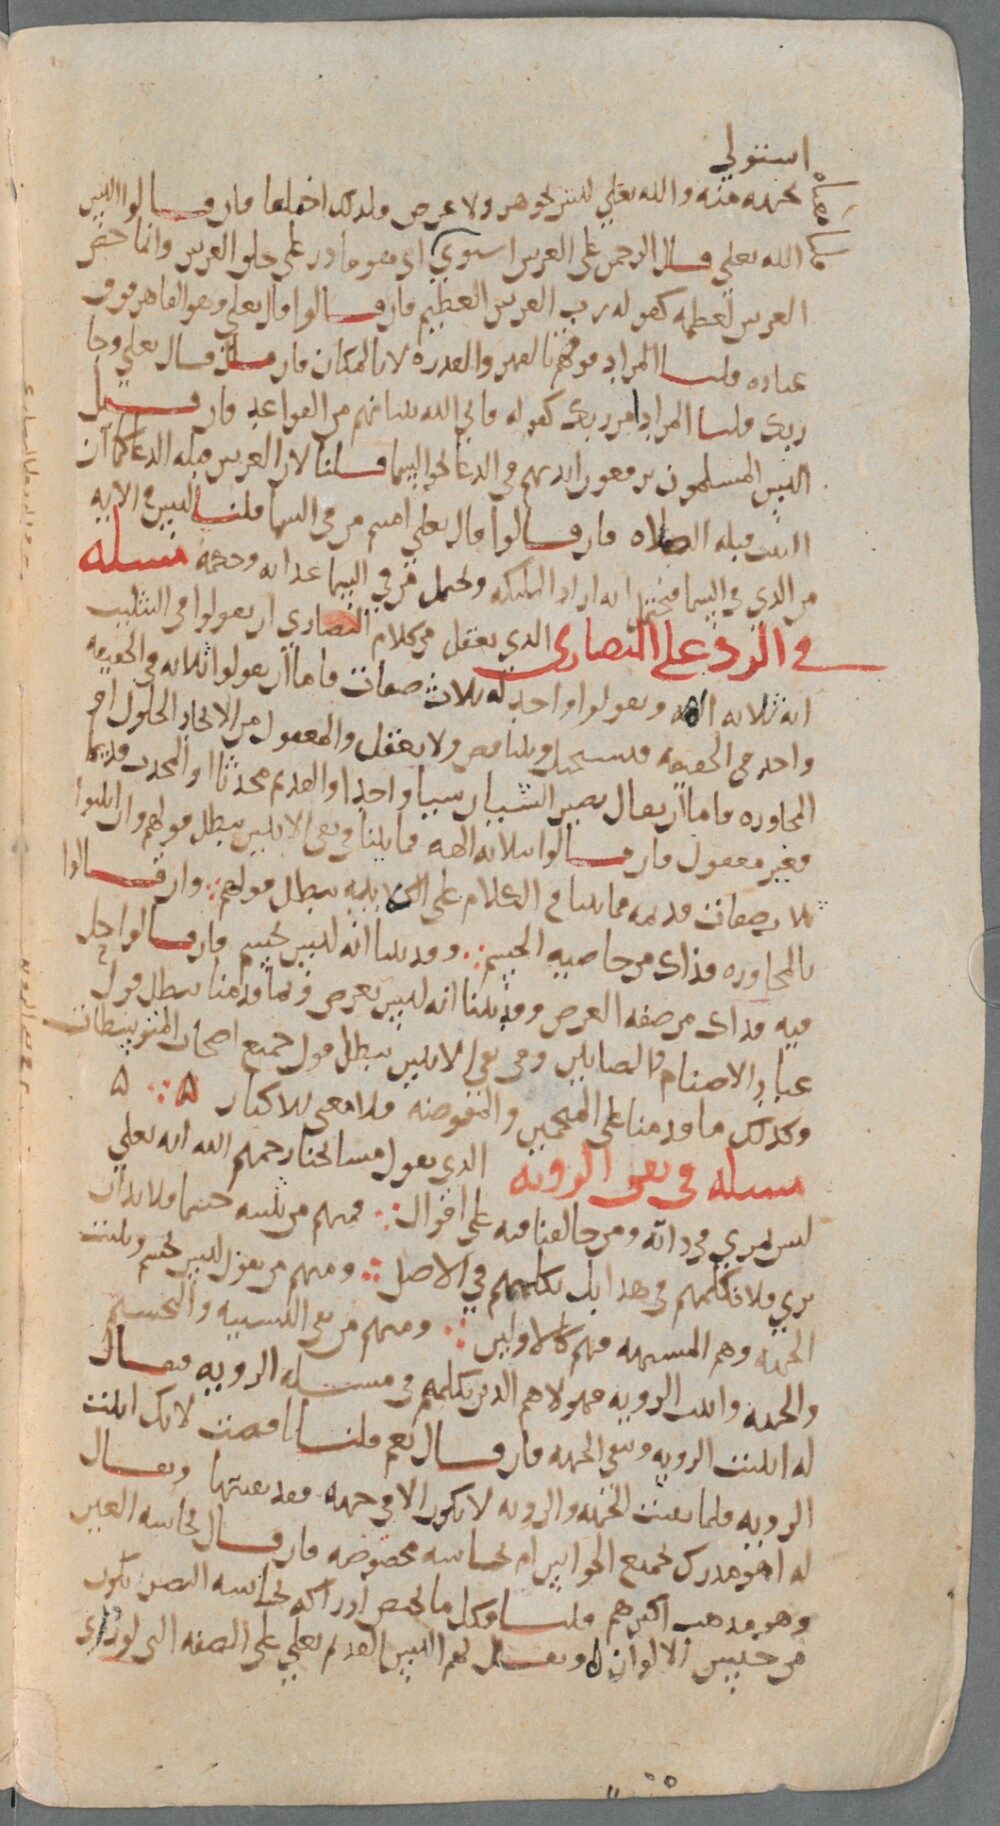 استولى
بجهة منه والله تعلى ليس بجوهر ولا عرض ولذلك اختلفا فان قالوا اليس
الله تعلى قال الرحمن على العرش استوى اى هو قادر على خلق العرش وانما خص
العرش لعظمه كقوله رب العرش العظيم فان قالوا قال تعلى وهو القاهر فوق
عباده قلنا المراد فوقهم بالقهر والقدره لا بالمكان فان قال قال تعلى وجا
ربك قلنا المراد امر ربك كقوله فاتى الله بنيانهم من القواعد فان قيل
اليس المسلمون يرفعون ايديهم فى الدعا نحو السما قلنا لان العرش قبله الدعا كما ان
البيت قبله الصلاه فان قالوا قال تعلى امنتم من فى السما قلنا ليس فى الايه
من الذى فى السما فيحتمل انه اراد الملئكه ويحتمل من فى السما عذابه وحكمه مسله
فى الرد على النصارى الذى يعقل من كلام النصارى ان يقولوا فى التثليث
انه ثلاثه الهه ويقولوا واحد له ثلاث صفات فاما ان يقولوا ثلاثه فى الحقيقه
واحد فى الحقيقه فمستحيل ويتناقض ولا يعقل والمعقول من الاتحاد الحلول او
المجاوره فاما ان يقال يصير الشيان شيا واحدا والقديم محدثا او المحدث قديما
فغير معقول فان قالوا بثلاثه الهه فما بينا فى نفى الاثنين يبطل قولهم وان اثبتوا
ثلاث صفات قديمه فما بينا فى الكلام على الكلابيه يبطل قولهم وان قالوا
بالمجاوره فذاك من خاصيه الجسم وقد بينا انه ليس بجسم فان قالوا حل
فيه فذاك من صفه العرض وقد بينا انه ليس بعرض وبما قدمنا يبطل قول
عباد الاصنام والصابئين وفى نفى الاثنين يبطل قول جميع اصحاب المتوسطات
وكذلك ما قدمنا على المنجمين والمفوضه فلا معنى للاكثار ۵ ۵
مسله فى نفى الرويه الذى يقول مشايخنا رحمهم الله انه تعلى
ليس بمرى فى ذاته ومن خالفنا فيه على اقوال فمنهم من يثبته جسما فلا بد ان
يرى فلا نكلمهم فى هذا بل نكلمهم فى الاصل ومنهم من يقول ليس بجسم ويثبت
الجهه وهم المشبهه فهم كالاولين ومنهم من نفى التشبيه والتجسيم
والجهه واثبت الرويه فهولاهم الذين نكلمهم فى مسله الرويه فيقال
له اثبتت الرويه ونفى الجهه فان قال نعم قلنا ناقضت لانك اثبتت
الرويه فلما نفيت الجهه والرويه لا تكون الا فى جهه فقد نفيتها ويقال
له اهو مدرك بجميع الحواس ام بحاسه مخصوصه فان قال بحاسه العين
وهو مذهب اكثرهم قلنا فكل ما يختص ادراكه بحاسه البصر يكون
من جنس الالوان ويقال لهم اليس القديم تعلى على الصفه التى لو راى